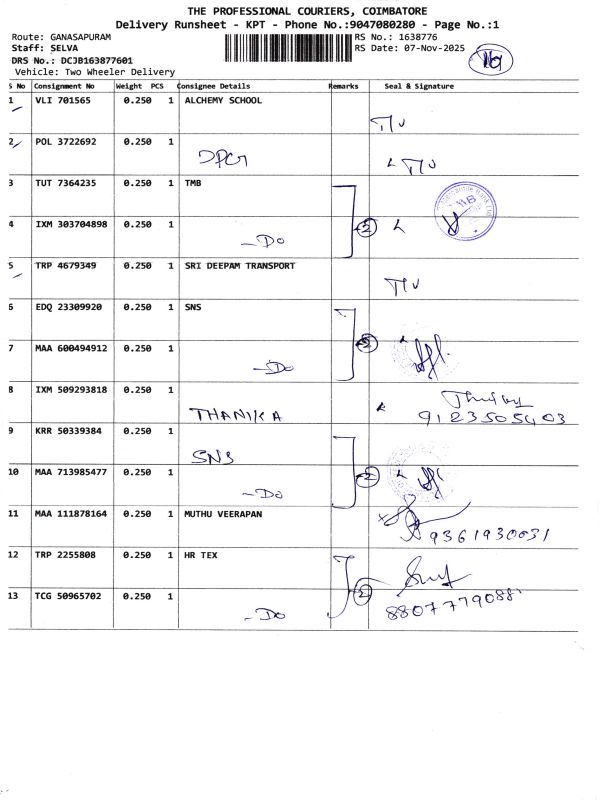 THE PROFESSIONAL COURIERS, COIMBATORE
Delivery Runsheet - KPT - Phone No.:9047080280 - Page No.:1
Route: GANASAPURAM RS No.: 1638776
Staff: SELVA RS Date: 07-Nov-2025
DRS No.: DCJB163877601
Vehicle: Two Wheeler Delivery
S No Consignment No Weight PCS Consignee Details Remarks Seal & Signature
1 VLI 701565 0.250 1 ALCHEMY SCHOOL
2 POL 3722692 0.250 1
DPG
3 TUT 7364235 0.250 1 TMB
4 IXM 303704898 0.250 1
-Do 2
5 TRP 4679349 0.250 1 SRI DEEPAM TRANSPORT
6 EDQ 23309920 0.250 1 SNS
7 MAA 600494912 0.250 1
-Do
8 IXM 509293818 0.250 1
THANIKA 9123505403
9 KRR 50339384 0.250 1
SNS
10 MAA 713985477 0.250 1
-Do 2
11 MAA 111878164 0.250 1 MUTHU VEERAPAN
9361930031
12 TRP 2255808 0.250 1 HR TEX
13 TCG 50965702 0.250 1
-Do 2 8807779088